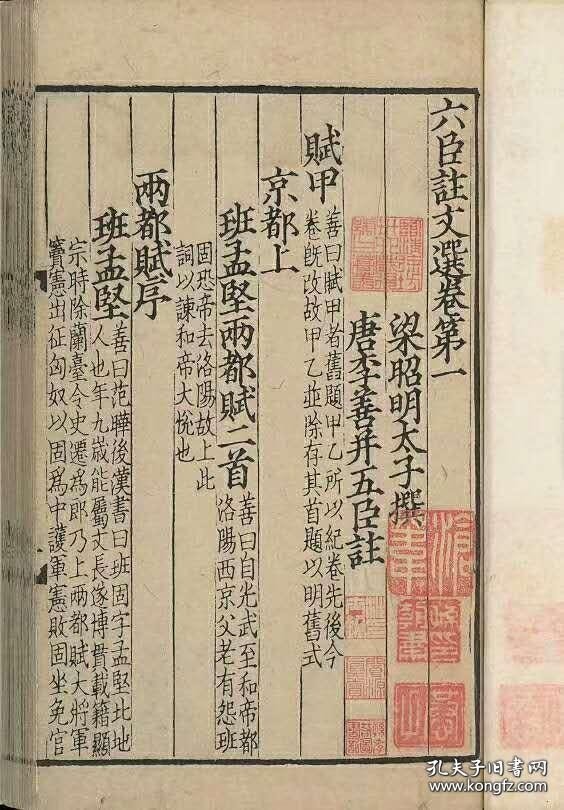 六臣註文選卷第一
梁昭明太子撰
唐李善并五臣註
賦甲
善曰賦甲者舊題甲乙所以紀卷先後今
卷既改故甲乙並除存其首題以明舊式
京都上
班孟堅兩都賦二首
善曰自光武至和帝都
洛陽西京父老有怨班
固恐帝去洛陽故上此
詞以諫和帝大悅也
兩都賦序
班孟堅
善曰范曄後漢書曰班固字孟堅北地
人也年九歲能屬文長遂博貫載籍顯
宗時除蘭臺令史遷為郎乃上兩都賦大將軍
竇憲出征匈奴以固為中護軍憲敗固坐免官
孔夫子旧书网
www.kongfz.com